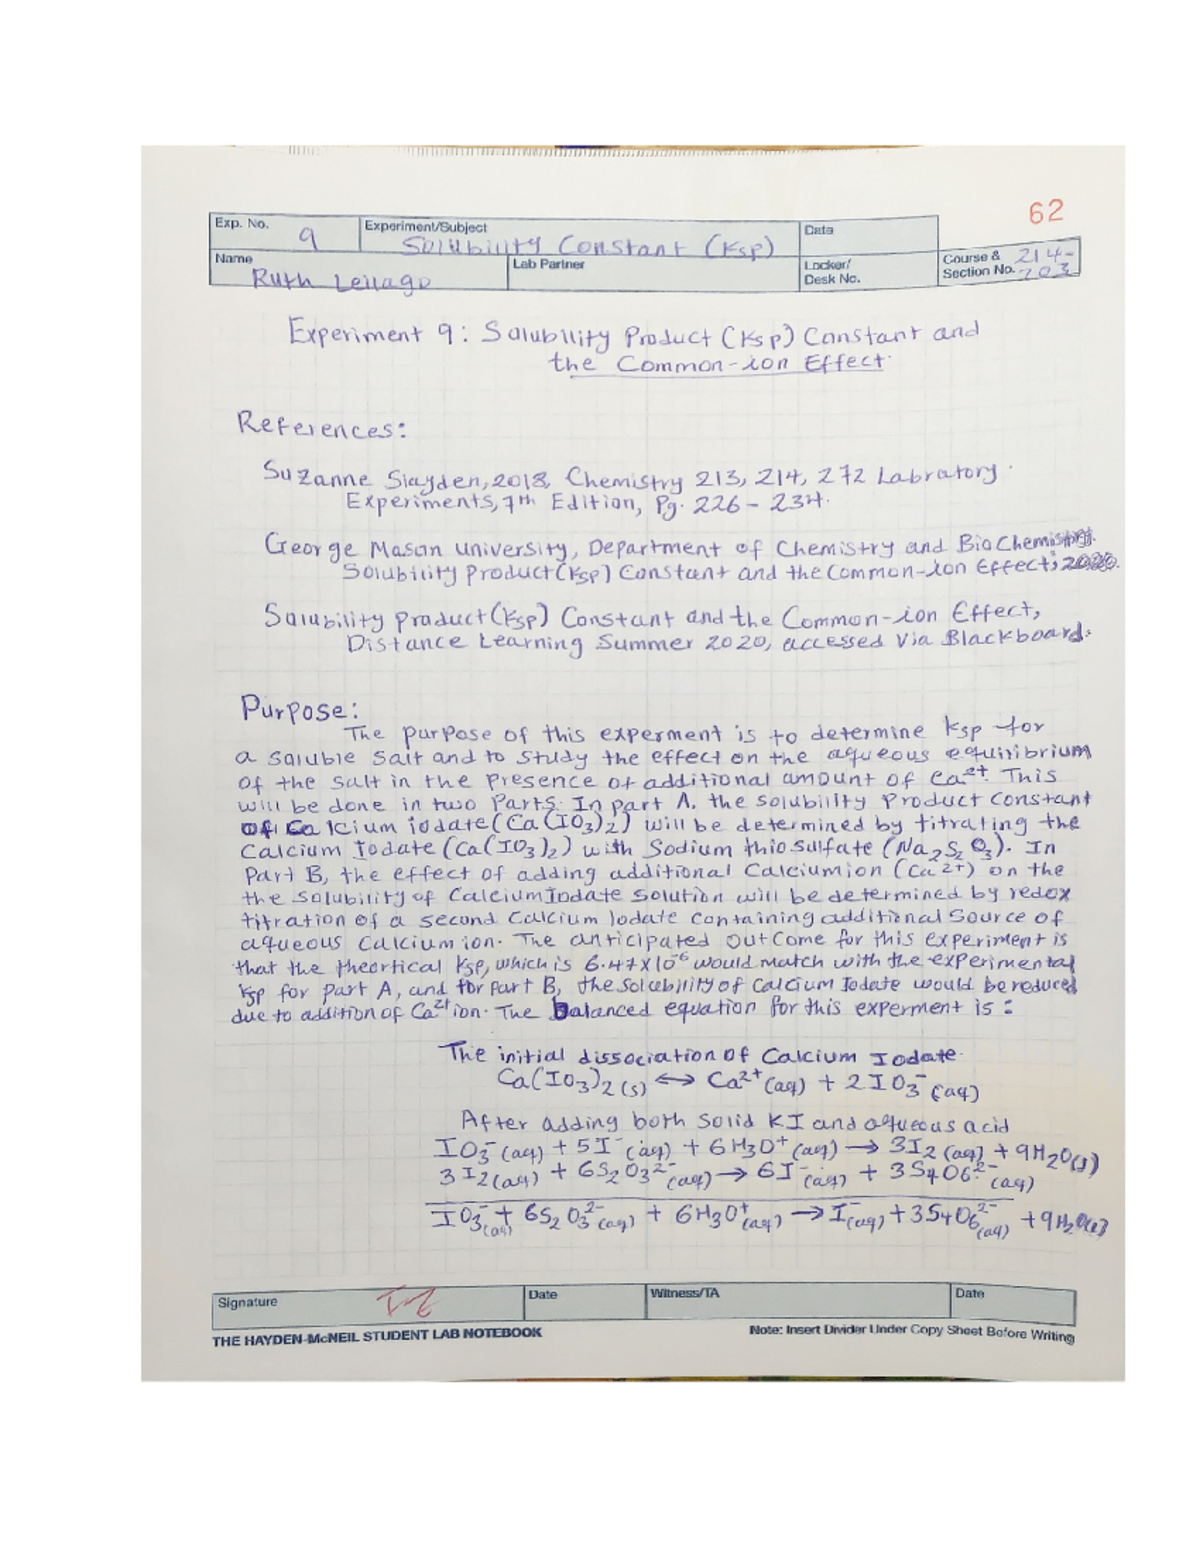 62
Exp. No. 9
Experiment/Subject
Solubility Constant (Ksp)
Date
Name
Ruth
Lab Partner
Locker/
Desk No.
Course & 214-
Section No. 203
Experiment 9: Solubility Product (Ksp) Constant and
the Common-ion Effect.
References:
Suzanne Slayden, 2018, Chemistry 213, 214, 272 Labratory
Experiments, 7th Edition, Pg. 226 - 234.
George Mason University, Department of Chemistry and BioChemistry.
Solubility Product (Ksp) Constant and the Common-ion Effect; 2020.
Solubility Product (Ksp) Constant and the Common-ion Effect,
Distance Learning Summer 2020, accessed Via Blackboard.
Purpose:
The purpose of this experment is to determine Ksp for
a soluble salt and to study the effect on the aqueous equilibrium
of the salt in the presence of additional amount of Ca²⁺. This
will be done in two parts. In part A. the solubility Product constant
of Calcium iodate (Ca(IO₃)₂) will be determined by titrating the
Calcium Iodate (Ca(IO₃)₂) with Sodium thiosulfate (Na₂S₂O₃). In
Part B, the effect of adding additional Calcium ion (Ca²⁺) on the
the solubility of Calcium Iodate Solution will be determined by redox
titration of a second Calcium Iodate containing additional Source of
aqueous Calcium ion. The anticipated outcome for this experiment is
that the theortical Ksp, which is 6.47x10⁻⁶ would match with the experimental
Ksp for part A, and for part B, the solubility of Calcium Iodate would be reduced
due to addition of Ca²⁺ ion. The balanced equation for this experment is :
The initial dissociation of Calcium Iodate.
Ca(IO₃)₂(s) ↔ Ca²⁺(aq) + 2IO₃⁻(aq)
After adding both solid KI and aqueous acid
IO₃⁻(aq) + 5I⁻(aq) + 6H₃O⁺(aq) → 3I₂(aq) + 9H₂O(l)
3I₂(aq) + 6S₂O₃²⁻(aq) → 6I⁻(aq) + 3S₄O₆²⁻(aq)
IO₃⁻(aq) + 6S₂O₃²⁻(aq) + 6H₃O⁺(aq) → I⁻(aq) + 3S₄O₆²⁻(aq) + 9H₂O(l)
Signature
Date
Witness/TA
Date
THE HAYDEN-McNEIL STUDENT LAB NOTEBOOK
Note: Insert Divider Under Copy Sheet Before Writing